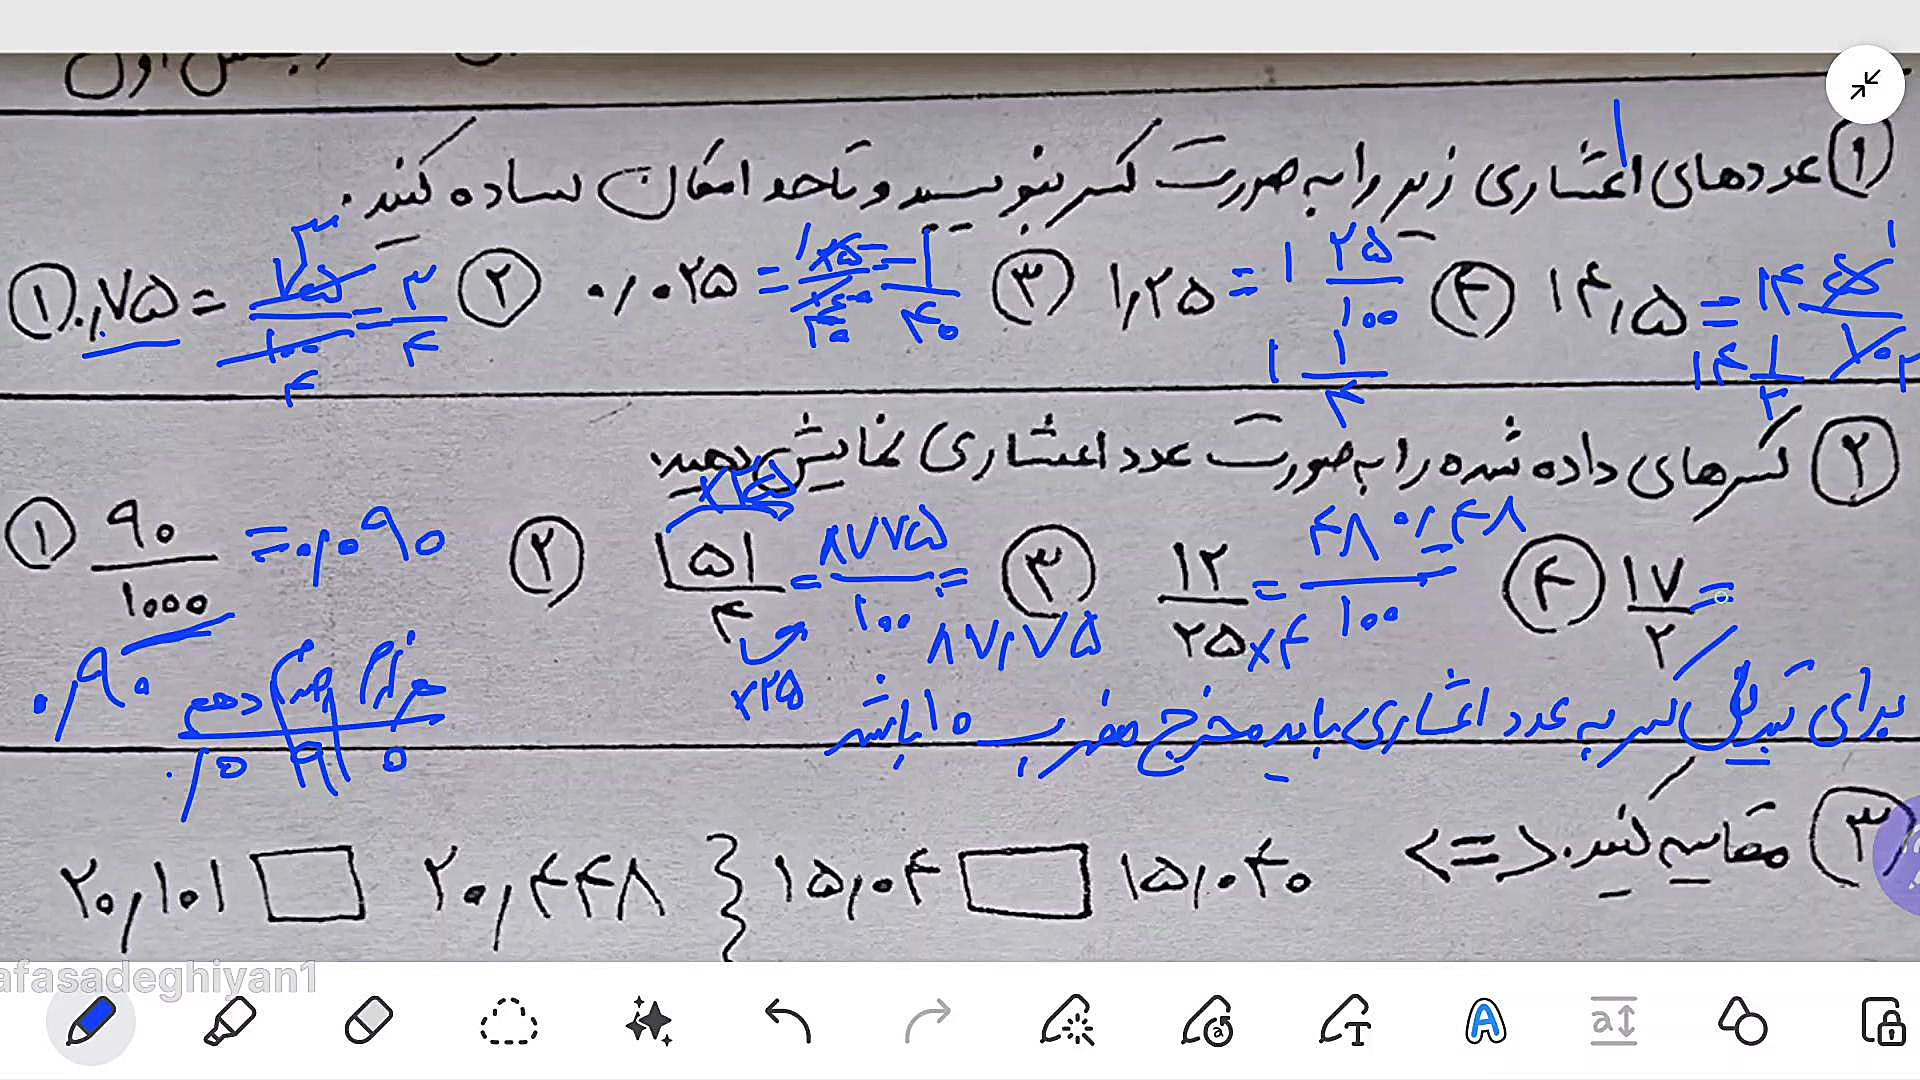 بخش اول
① عددهای اعشاری زیر را به صورت کسر بنویسید و تا حد امکان ساده کنید.
① ۰٫۷۵ = ۷۵/۱۰۰ = ۳/۴ ② ۰٫۰۲۵ = = ۱/۴۰ ③ ۱٫۲۵ = ۱ ۲۵/۱۰۰ ④ ۱۴٫۵ = ۱۴ ۵/۱۰
۱ ۱/۴ ۱۴ ۱/۲
② کسرهای داده شده را به صورت عدد اعشاری نمایش دهید.
① ۹۰/۱۰۰۰ = ۰٫۰۹۰ ② ۳۵۱/۴ = ۸۷۷۵/۱۰۰ = ۸۷٫۷۵ ③ ۱۲/۲۵ = ۴۸/۱۰۰ = ۰٫۴۸ ④ ۱۷/۲ =
×۲۵ ×۴
۰٫۹۰ دهم صدم هزارم
۰٫ ۰ ۹ ۰
برای تبدیل کسر به عدد اعشاری باید مخرج مضرب ۱۰ باشد
③ مقایسه کنید. < = >
۲۰٫۱۰۱ □ ۲۰٫۴۴۸ } ۱۵٫۰۴ □ ۱۵٫۰۴۰
afasadeghiyan1